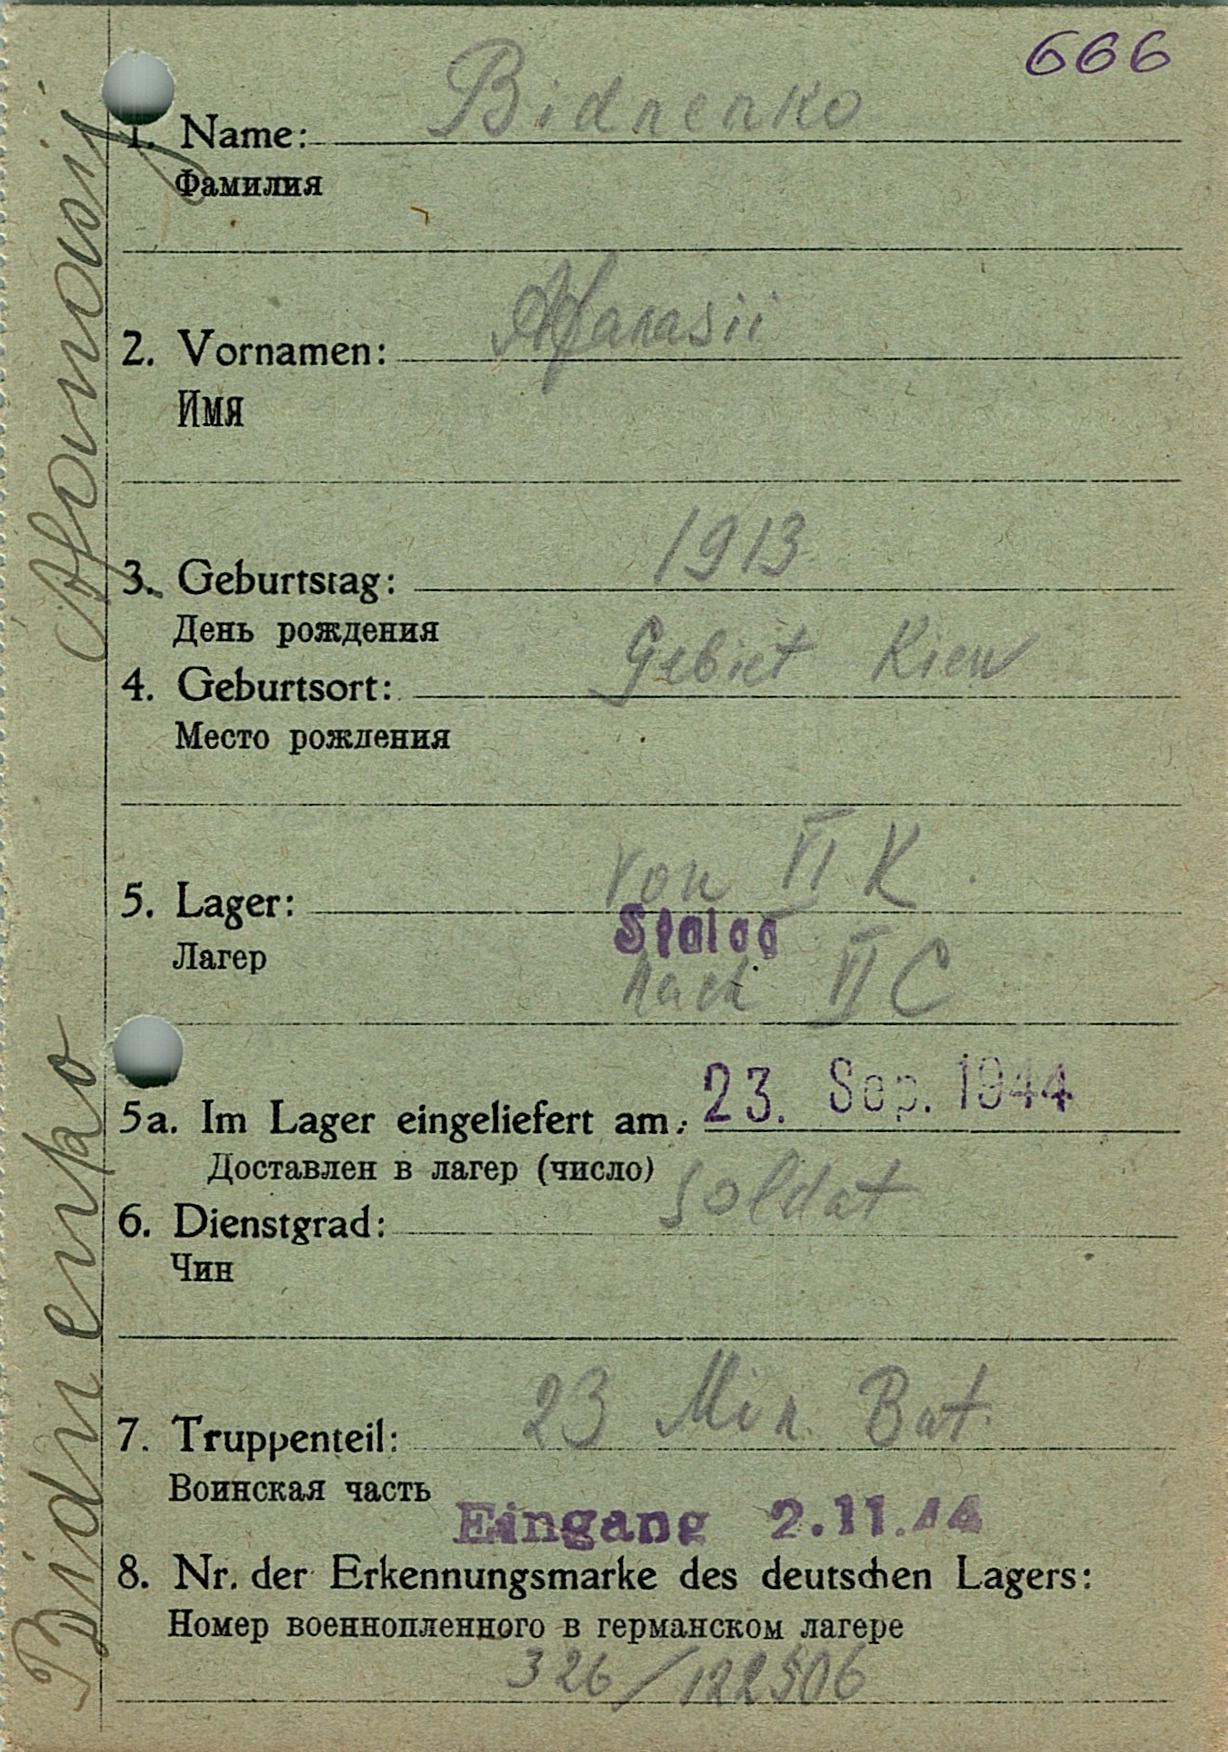 666
1. Name: Bidnenko
Фамилия
2. Vornamen: Afanasii
Имя
3. Geburtstag: 1913
День рождения
4. Geburtsort: Gebiet Kiew
Место рождения
von VI K
5. Lager:
Stalag
Лагер
nach VI C
5a. Im Lager eingeliefert am: 23. Sep. 1944
Доставлен в лагер (число)
6. Dienstgrad: Soldat
Чин
7. Truppenteil: 23 Min. Bat.
Воинская часть
Eingang 2.11.44
8. Nr. der Erkennungsmarke des deutschen Lagers:
Номер военнопленного в германском лагере
326/122506
Bidnenko Afanasij